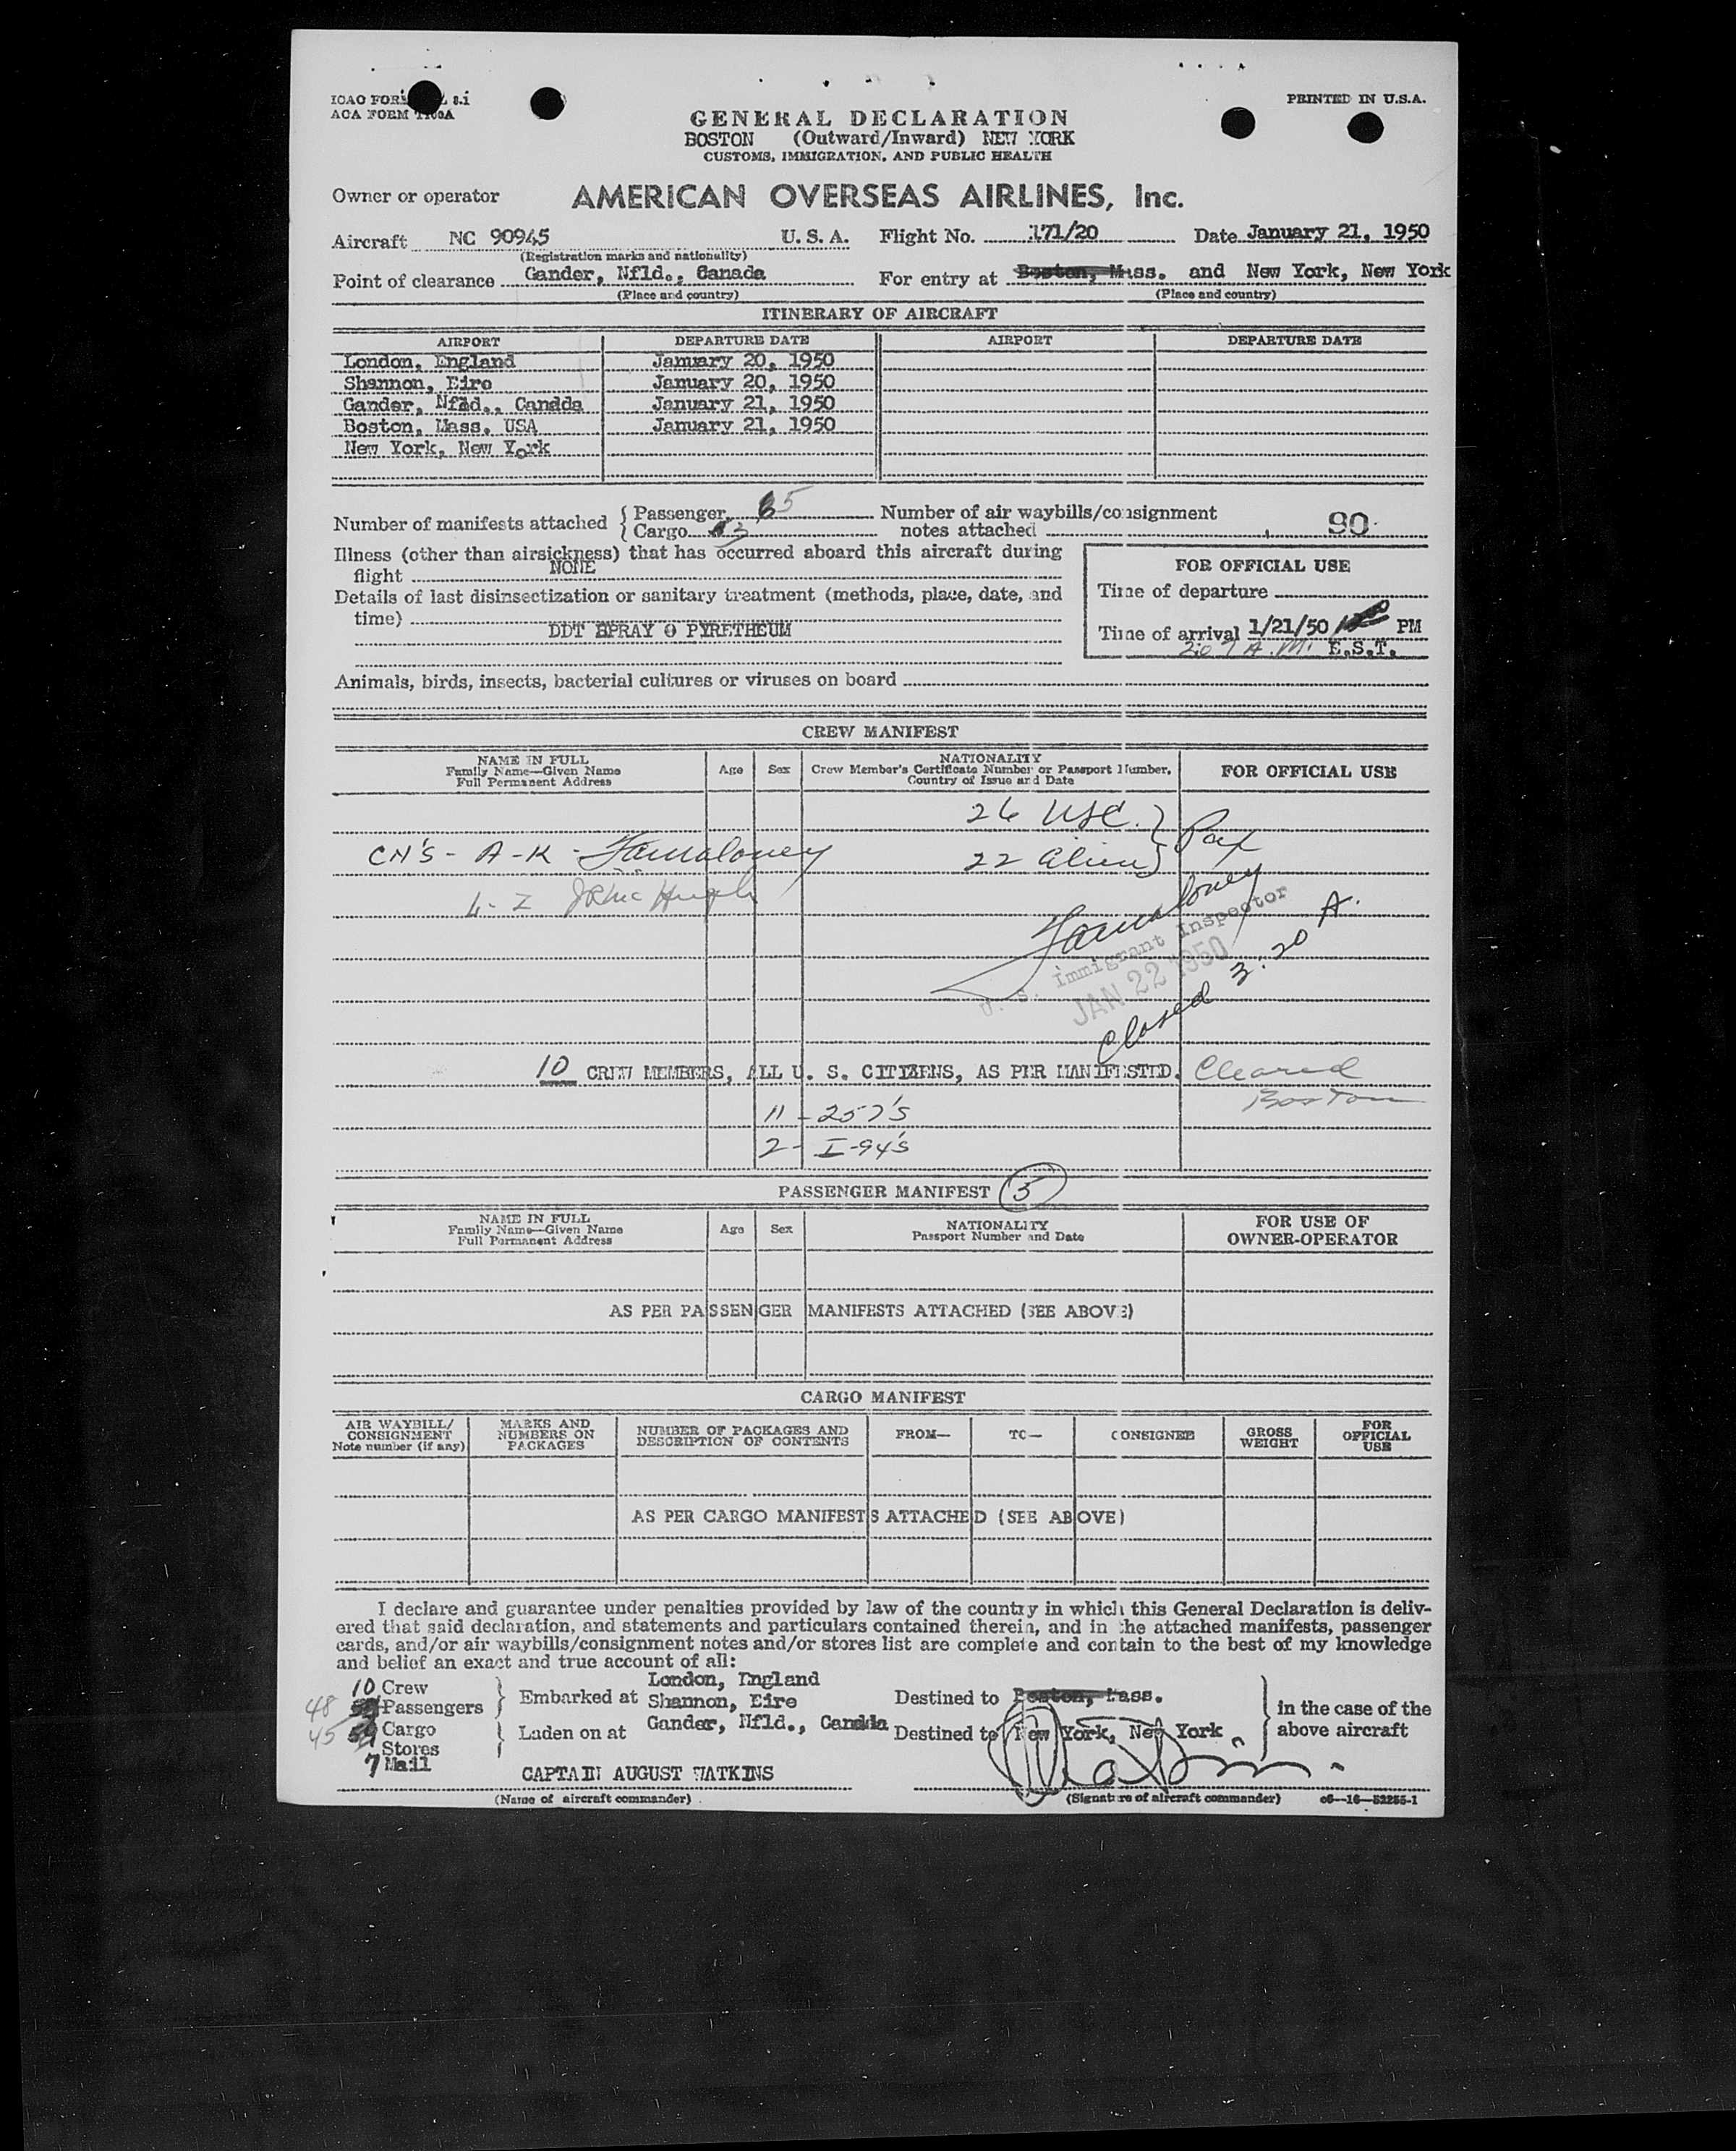 ICAO FORM 8.1
ACA FORM 1106A
PRINTED IN U.S.A.
GENERAL DECLARATION
BOSTON (Outward/Inward) NEW YORK
CUSTOMS, IMMIGRATION, AND PUBLIC HEALTH
Owner or operator AMERICAN OVERSEAS AIRLINES, Inc.
Aircraft NC 90945 U. S. A. Flight No. 171/20 Date January 21, 1950
(Registration marks and nationality)
Point of clearance Gander, Nfld., Canada For entry at Boston, Mass. and New York, New York
(Place and country) (Place and country)
ITINERARY OF AIRCRAFT
AIRPORT DEPARTURE DATE AIRPORT DEPARTURE DATE
London, England January 20, 1950
Shannon, Eire January 20, 1950
Gander, Nfld., Candda January 21, 1950
Boston, Mass. USA January 21, 1950
New York, New York
Number of manifests attached { Passenger 5 Number of air waybills/consignment
{ Cargo 3 notes attached 90
Illness (other than airsickness) that has occurred aboard this aircraft during
flight NONE
Details of last disinsectization or sanitary treatment (methods, place, date, and
time)
DDT SPRAY & PYRETHEUM
FOR OFFICIAL USE
Time of departure
Time of arrival 1/21/50 PM
2:07 A.M. E.S.T.
Animals, birds, insects, bacterial cultures or viruses on board
CREW MANIFEST
NAME IN FULL
Family Name—Given Name
Full Permanent Address
Age Sex
NATIONALITY
Crew Member's Certificate Number or Passport Number,
Country of Issue and Date
FOR OFFICIAL USE
26 USC. } Pax
CN'S - A-K - Famaloney 22 alien }
L-Z
Famaloney
U. S. Immigrant Inspector
JAN 22 1950
Closed 3:20 A.
10 CREW MEMBERS, ALL U. S. CITIZENS, AS PER MANIFESTED. Cleared
Boston
11 - 257's
2 - I-94's
PASSENGER MANIFEST 5
NAME IN FULL
Family Name—Given Name
Full Permanent Address
Age Sex
NATIONALITY
Passport Number and Date
FOR USE OF
OWNER-OPERATOR
AS PER PASSENGER MANIFESTS ATTACHED (SEE ABOVE)
CARGO MANIFEST
AIR WAYBILL/
CONSIGNMENT
Note number (if any)
MARKS AND
NUMBERS ON
PACKAGES
NUMBER OF PACKAGES AND
DESCRIPTION OF CONTENTS
FROM— TO— CONSIGNEE
GROSS
WEIGHT
FOR
OFFICIAL
USE
AS PER CARGO MANIFESTS ATTACHED (SEE ABOVE)
I declare and guarantee under penalties provided by law of the country in which this General Declaration is deliv-
ered that said declaration, and statements and particulars contained therein, and in the attached manifests, passenger
cards, and/or air waybills/consignment notes and/or stores list are complete and contain to the best of my knowledge
and belief an exact and true account of all:
10 Crew
48 Passengers
45 Cargo
Stores
7 Mail
Embarked at
Laden on at
London, England
Shannon, Eire
Gander, Nfld., Candda
Destined to Boston, Mass.
Destined to New York, New York
in the case of the
above aircraft
CAPTAIN AUGUST WATKINS
(Name of aircraft commander) (Signature of aircraft commander) c6—16—52255-1